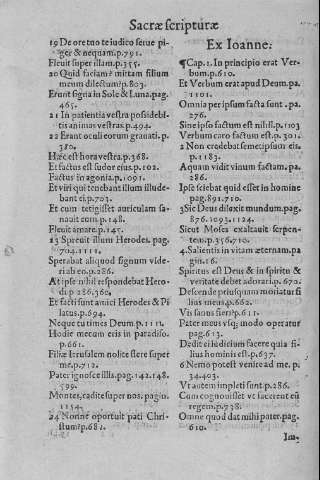 Sacræ scripturæ
19 De ore tuo te iudico serue pi-
ger & nequam.p.791.
Fleuit super illam.p.355.
20 Quid faciam? mittam filium
meum dilectum?p.803.
Erunt signa in Sole & Luna.pag.
465.
21 In patientia vestra possidebi-
tis animas vestras.p.494.
22 Erant oculi eorum grauati.p.
380.
Hæc est hora vestra.p.368.
Et factus est sudor eius.p.102.
Factus in agonia.p.1091.
Et viri qui tenebant illum illude-
bant ei.p.703.
Et cum tetigisset auriculam sa-
nauit eum.p.148.
Fleuit amare.p.145.
23 Spreuit illum Herodes. pag.
704.1111.
Sperabat aliquod signum vide-
ri ab eo.p.286.
At ipse nihil respondebat Hero-
di p 286.360.
Et facti sunt amici Herodes & Pi
latus.p.694.
Neque tu times Deum.p.1111.
Hodie mecum eris in paradiso.
p.661.
Filiæ Ierusalem nolite flere super
me.p.712.
Pater ignosce illis.pag.142.148.
599.
Montes, cadite super nos. pag.
1154.
24 Nonne oportuit pati Chri-
stum?p.682.
Ex Ioanne.
¶Cap.1. In principio erat Ver-
bum.p.610.
Et Verbum erat apud Deum.pa.
1101.
Omnia per ipsum facta sunt.pa.
276.
Sine ipso factum est nihil.p.1103
Verbum caro factum est.p.301.
2 Non credebat semetipsum eis.
p.1183.
Aquam vidit vinum factam.pa.
286.
Ipse sciebat quid esset in homine
pag.891.710.
3 Sic Deus dilexit mundum.pag.
876.1093.1124.
Sicut Moses exaltauit serpen-
tem.p.356.710.
4. Salientis in vitam æternam.pa
gin.16.
Spiritus est Deus & in spiritu &
veritate debet adorari.p.670.
Descende priusquam moriatur fi
lius meus.p.662.
Vis sanus fieri?p.611.
Pater meus vsq; modo operatur
pag.613.
Dedit ei iudicium facere quia fi-
lius hominis est.p.637.
6 Nemo potest venire ad me. p.
34.403.
Vt autem impleti sunt.p.286.
Cum cognouisset vt facerent eū
regem.p.738.
Omne quod dat mihi pater.pag.
610.